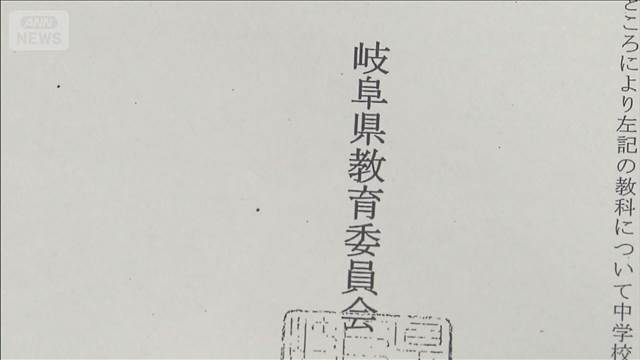 ANN
NEWS
ところにより左記の教科について中学校
岐阜県教育委員会